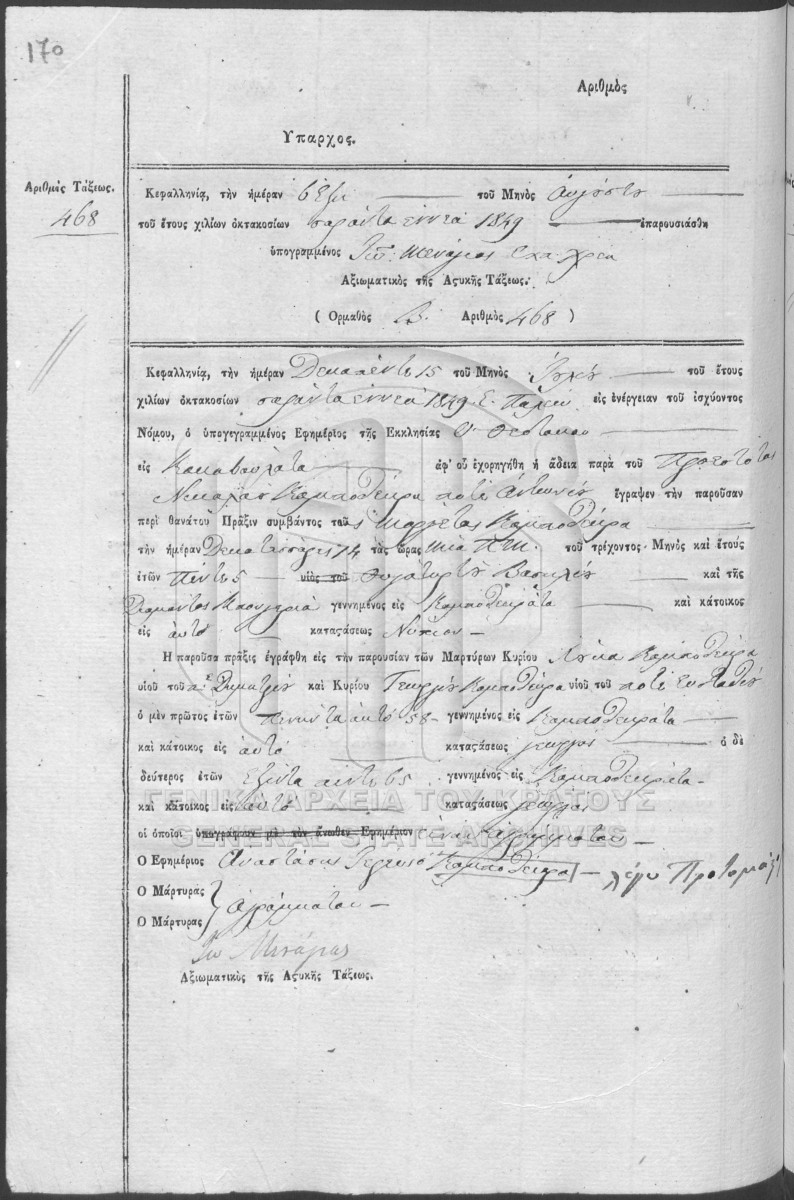 170
Αριθμὸς
Υπαρχος.
Αριθμὸς Τάξεως.
468
Κεφαλληνίᾳ, τὴν ἡμέραν 6 ἕξη τοῦ Μηνὸς Αυγούστου
τοῦ ἔτους χιλίων ὀκτακοσίων σαράντα εννεα 1849 ἐπαρουσιάσθη
ὑπογραμμένος
Αξιωματικὸς τῆς Αςυκῆς Τάξεως.
( Ορμαθὸς Β. Αριθμὸς 468 )
Κεφαλληνίᾳ, τὴν ἡμέραν Δεκαπέντε 15 τοῦ Μηνὸς τοῦ ἔτους
χιλίων ὀκτακοσίων σαράντα εννεα 1849 εἰς ἐνέργειαν τοῦ ἰσχύοντος
Νόμου, ὁ ὑπογεγραμμένος Εφημέριος τῆς Εκκλησίας Θεοτοκου
εἰς Κακαβουλατα ἀφ' οὗ ἐχορηγήθη ἡ ἄδεια παρὰ τοῦ Προεστότος
Νικολάου Καμποθέκρα ποτὲ Αντωνίου ἔγραψεν τὴν παροῦσαν
περὶ θανάτου Πρᾶξιν συμβάντος τοῦ Καμποθέκρα
τὴν ἡμέραν Δεκατεσσάρες 14 τὰς ὥρας μία Π.Μ. τοῦ τρέχοντος Μηνὸς καὶ ἔτους
ἐτῶν Πέντε 5 υἱὸς τοῦ Θυγατηρ τοῦ Βασιλίου καὶ τῆς
γεννημένος εἰς Καμποθεκράτα καὶ κάτοικος
εἰς αυτό καταςάσεως Νήπιον
Η παροῦσα πρᾶξις ἐγράφθη εἰς τὴν παρουσίαν τῶν Μαρτύρων Κυρίου Λουκα Καμποθέκρα
υἱοῦ τοῦ καὶ Κυρίου Γεωργίου Καμποθέκρα υἱοῦ τοῦ ποτὲ Ευσταθίου
ὁ μὲν πρῶτος ἐτῶν Πενήντα οκτό 58 γεννημένος εἰς Καμποθεκράτα
καὶ κάτοικος εἰς αυτό καταςάσεως γεωργός ὁ δὲ
δεύτερος ἐτῶν Εξῆντα πέντε 65 γεννημένος εἰς Καμποθεκράτα
καὶ κάτοικος εἰς αυτό καταςάσεως γεωργός
οἱ ὁποῖοι ὑπογράφουν μὲ τὸν ἄνωθεν Εφημέριον είναι αγράμματοι
Ο Εφημέριος Αναστάσης Καμποθέκρα λέγω
Ο Μάρτυρας
αγράμματοι
Ο Μάρτυρας
Ιω Μηνάγιας
Αξιωματικὸς τῆς Αςυκῆς Τάξεως.
ΓΕΝΙΚΑ ΑΡΧΕΙΑ ΤΟΥ ΚΡΑΤΟΥΣ
GENERAL STATE ARCHIVES